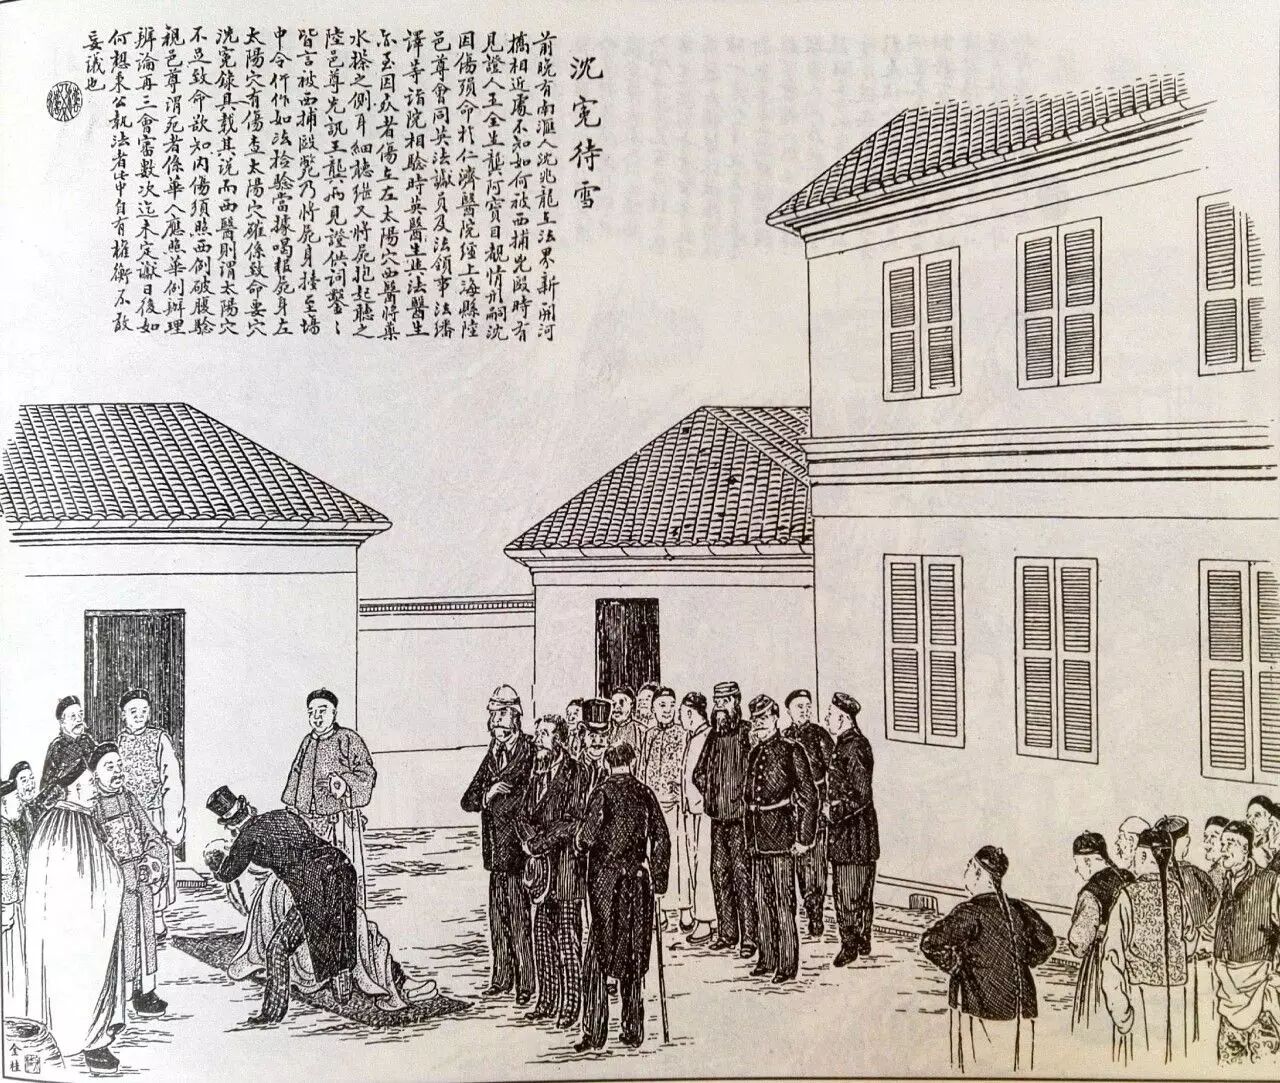 沈冤待雪
前晚有南滙人沈兆龍在法界新開河
橋相近處不知如何被西捕兇毆時有
見證人王全生龔阿寶目覩情形嗣沈
因傷殞命於仁濟醫院經上海縣陸
邑尊會同英法讞員及法領事法繙
譯等詣院相驗時英醫生並法醫生
亦至因死者傷在左太陽穴西醫將藥
水搽之側耳細聽繼又將屍抱起聽之
陸邑尊先訊王龔兩見證供詞鑿鑿
皆言被西捕毆斃乃將屍身擡至場
中令仵作如法檢驗當據喝報屍身左
太陽穴有傷查太陽穴確係致命要穴
洗冤錄具載其說而西醫則謂太陽穴
不足致命欲知內傷須照西例破腹驗
視邑尊謂死者係華人應照華例辦理
辨論再三會審數次迄未定讞日後如
何想秉公執法者此中自有權衡不敢
妄議也
金桂